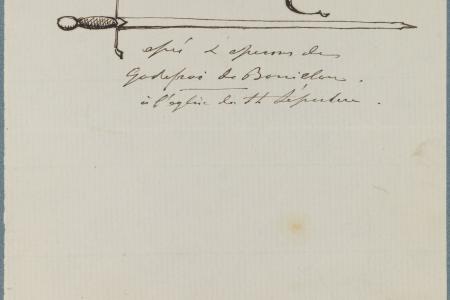 épée & éperons de
Godefroi de Bouillon.
à l'église du St Sépulcre.